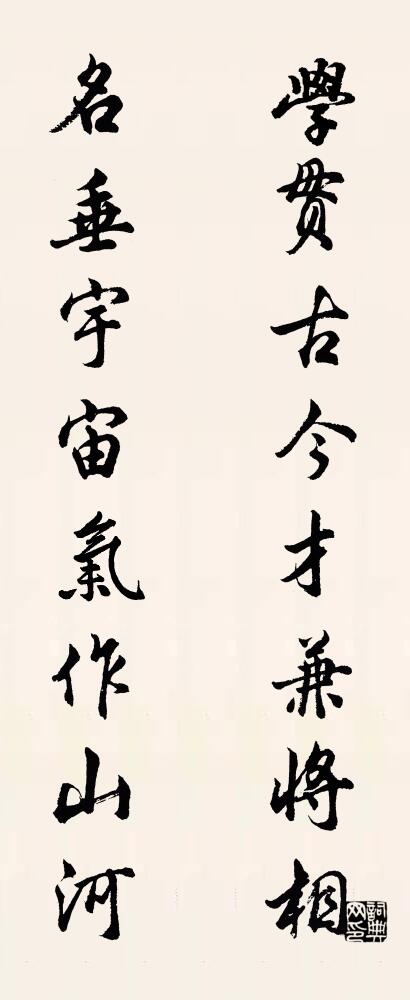 學貫古今才兼將相
名垂宇宙氣作山河
詞典網印